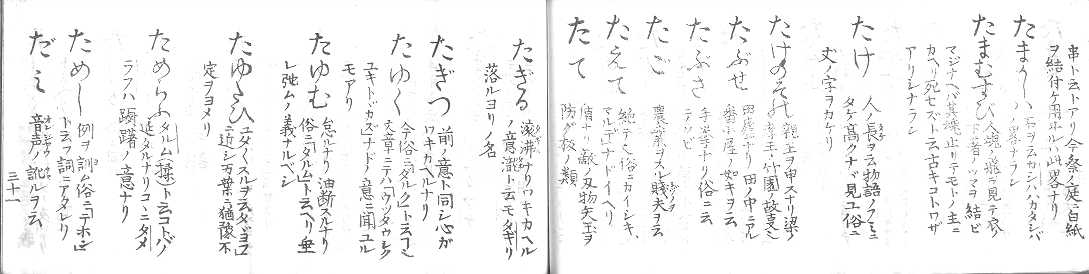 串ト云トアリ今祭ノ庭ニ白紙
ヲ結付ケ曳ホルハ此畧ナリ
たま〱
たまむすひ 人魂ノ飛ヲ見テ衣ノ
下着ノツマヲ結ビ
マジナヘバ其魂止リテモトノ主ニ
カヘリ死セズト云古キコトワザ
アリシナラシ
たけ 人ノ長ヲ云物語ノフミニ
タケ高クナド見ユ俗ニ
丈ノ字ヲカケリ
たけのその 親王ヲ申スナリ梁ノ
孝王ノ竹園ノ故事ニ
たぶせ 田廬ナリ田ノ中ニアル
番小屋ノ如キヲ云
たぶさ 手首ナリ俗ニ云
テクビ
たご 農業ヲスル賤夫ヲ云
たえて 絶テ也俗ニカイシキ、
マルデナドイヘリ
たて 盾ナリ敵ノ刄物矢玉ヲ
防グ板ノ類
たぎる 滾沸ナリワキカヘル
ノ意瀧ト云モタギリ
落ルヨリノ名
たぎつ 前ノ意ト同シ心ガ
ワキカヘルナリ
たゆく 今俗ニダルクト云コト
文章ニテハウツタウシク
ユキトドカズナドノ意ニ聞ユル
モアリ
たゆむ 怠ルナリ油断スルナリ
俗ニタルムト云ヘリ垂
レ弛ムノ義ナルベシ
たゆたひ
ニ近シ万葉ニ猶豫不
定ヲヨメリ
ためらふ
延タルナリコヽニタメ
ラフハ躊躇ノ意ナリ
ためし 例ヲ訓ム俗ニホン
ト云フ詞ニアタレリ
だミ 音声ノ訛ルヲ云
三十一